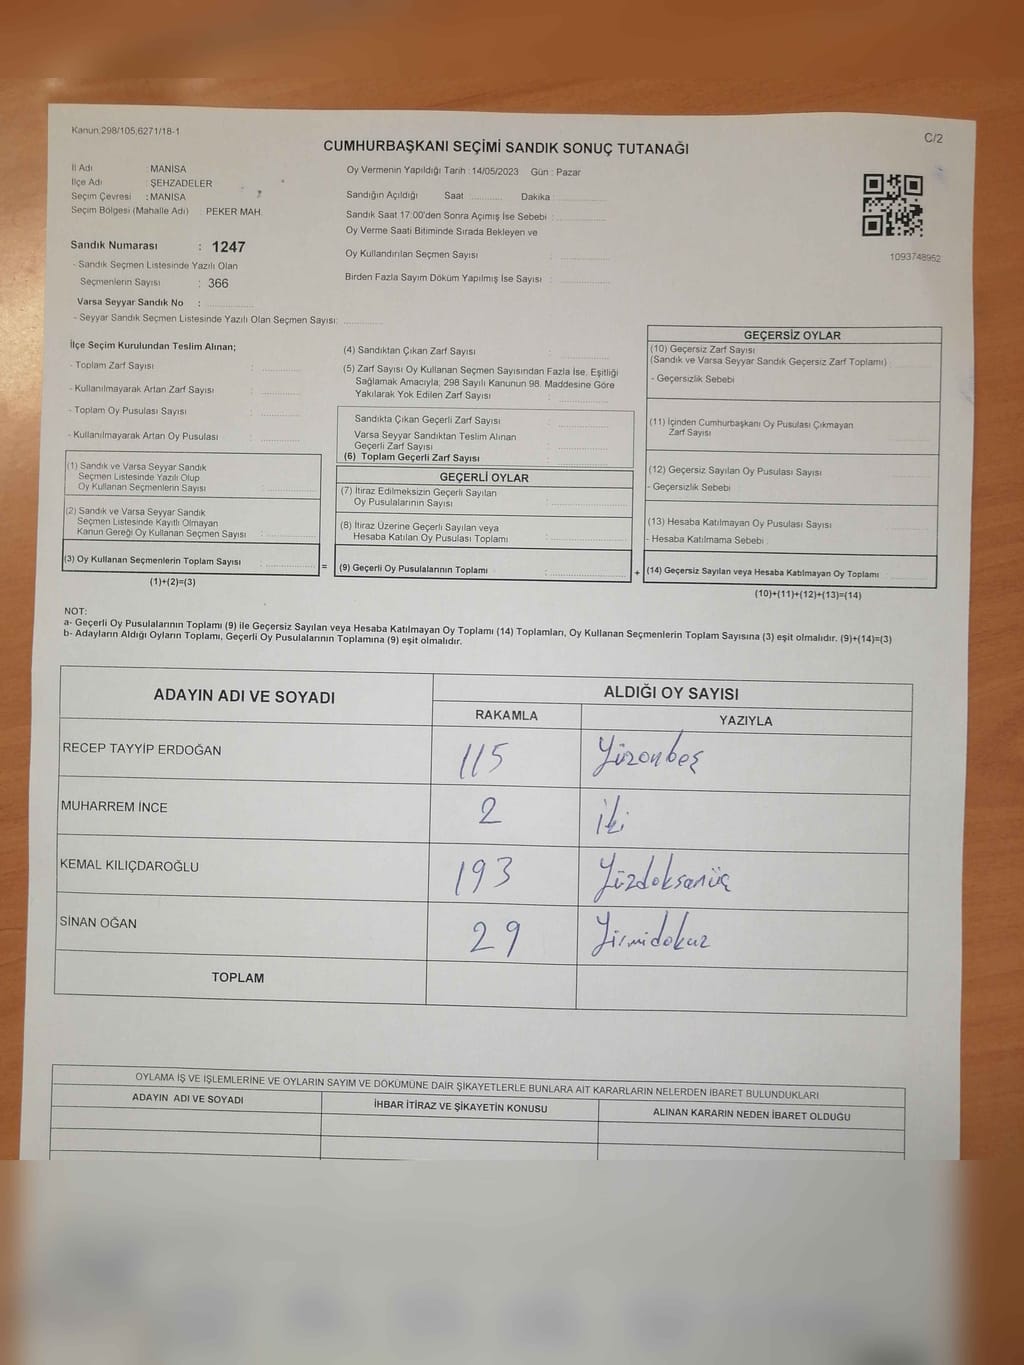 Kanun;298/105;6271/18-1
C/2
CUMHURBAŞKANI SEÇİMİ SANDIK SONUÇ TUTANAĞI
İl Adı : MANİSA
İlçe Adı : ŞEHZADELER
Seçim Çevresi : MANİSA
Seçim Bölgesi (Mahalle Adı) : PEKER MAH.
Sandık Numarası : 1247
- Sandık Seçmen Listesinde Yazılı Olan
Seçmenlerin Sayısı : 366
Varsa Seyyar Sandık No : ............
- Seyyar Sandık Seçmen Listesinde Yazılı Olan Seçmen Sayısı: ............
Oy Vermenin Yapıldığı Tarih : 14/05/2023 Gün : Pazar
Sandığın Açıldığı Saat ............ Dakika ............
Sandık Saat 17:00'den Sonra Açımış İse Sebebi : ............
Oy Verme Saati Bitiminde Sırada Bekleyen ve
Oy Kullandırılan Seçmen Sayısı : ............
Birden Fazla Sayım Döküm Yapılmış İse Sayısı : ............
1093748952
İlçe Seçim Kurulundan Teslim Alınan;
- Toplam Zarf Sayısı : ............
- Kullanılmayarak Artan Zarf Sayısı : ............
- Toplam Oy Pusulası Sayısı : ............
- Kullanılmayarak Artan Oy Pusulası : ............
(1) Sandık ve Varsa Seyyar Sandık
Seçmen Listesinde Yazılı Olup
Oy Kullanan Seçmenlerin Sayısı : ............
(2) Sandık ve Varsa Seyyar Sandık
Seçmen Listesinde Kayıtlı Olmayan
Kanun Gereği Oy Kullanan Seçmen Sayısı : ............
(3) Oy Kullanan Seçmenlerin Toplam Sayısı : ............
(1)+(2)=(3)
(4) Sandıktan Çıkan Zarf Sayısı : ............
(5) Zarf Sayısı Oy Kullanan Seçmen Sayısından Fazla İse, Eşitliği
Sağlamak Amacıyla; 298 Sayılı Kanunun 98. Maddesine Göre
Yakılarak Yok Edilen Zarf Sayısı : ............
Sandıkta Çıkan Geçerli Zarf Sayısı : ............
Varsa Seyyar Sandıktan Teslim Alınan
Geçerli Zarf Sayısı : ............
(6) Toplam Geçerli Zarf Sayısı : ............
GEÇERLİ OYLAR
(7) İtiraz Edilmeksizin Geçerli Sayılan
Oy Pusulalarının Sayısı : ............
(8) İtiraz Üzerine Geçerli Sayılan veya
Hesaba Katılan Oy Pusulası Toplamı : ............
= (9) Geçerli Oy Pusulalarının Toplamı : ............
GEÇERSİZ OYLAR
(10) Geçersiz Zarf Sayısı
(Sandık ve Varsa Seyyar Sandık Geçersiz Zarf Toplamı) : ............
- Geçersizlik Sebebi
(11) İçinden Cumhurbaşkanı Oy Pusulası Çıkmayan
Zarf Sayısı ............
(12) Geçersiz Sayılan Oy Pusulası Sayısı ............
- Geçersizlik Sebebi
(13) Hesaba Katılmayan Oy Pusulası Sayısı ............
- Hesaba Katılmama Sebebi
+ (14) Geçersiz Sayılan veya Hesaba Katılmayan Oy Toplamı ............
(10)+(11)+(12)+(13)=(14)
NOT:
a- Geçerli Oy Pusulalarının Toplamı (9) ile Geçersiz Sayılan veya Hesaba Katılmayan Oy Toplamı (14) Toplamları, Oy Kullanan Seçmenlerin Toplam Sayısına (3) eşit olmalıdır. (9)+(14)=(3)
b- Adayların Aldığı Oyların Toplamı, Geçerli Oy Pusulalarının Toplamına (9) eşit olmalıdır.
ADAYIN ADI VE SOYADI
ALDIĞI OY SAYISI
RAKAMLA YAZIYLA
RECEP TAYYİP ERDOĞAN 115 Yüzonbeş
MUHARREM İNCE 2 iki
KEMAL KILIÇDAROĞLU 193 Yüzdoksanüç
SİNAN OĞAN 29 Yirmidokuz
TOPLAM
OYLAMA İŞ VE İŞLEMLERİNE VE OYLARIN SAYIM VE DÖKÜMÜNE DAİR ŞİKAYETLERLE BUNLARA AİT KARARLARIN NELERDEN İBARET BULUNDUKLARI
ADAYIN ADI VE SOYADI İHBAR İTİRAZ VE ŞİKAYETİN KONUSU ALINAN KARARIN NEDEN İBARET OLDUĞU